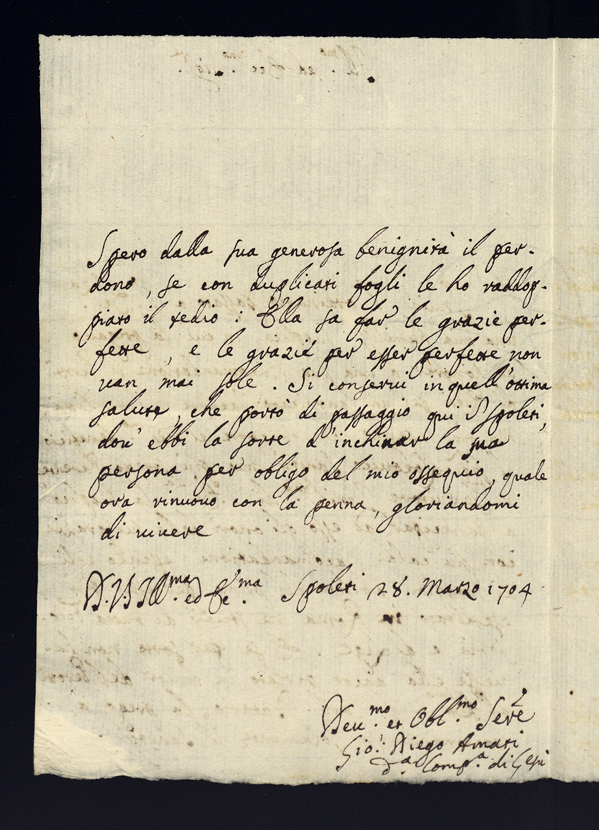 Spero dalla sua generosa benignità il per-
dono, se con duplicati fogli le ho raddop-
piato il tedio: Ella sa far le grazie per-
fette, e le grazie per esser perfette non
uan mai sole. Si conserui in quell'ottima
salute, che portò di passaggio qui à Spoleti,
dou' ebbi la sorte d'inchinar la sua
persona per obligo del mio ossequio, quale
ora rinuouo con la penna, gloriandomi
di uiuere
D. V. Ill.ma ed Ecc.ma Spoleti 28. Marzo 1704
Deu.mo et Obl.mo Serê
Gio: Diego Amati
d.a Comp.a di Gesù